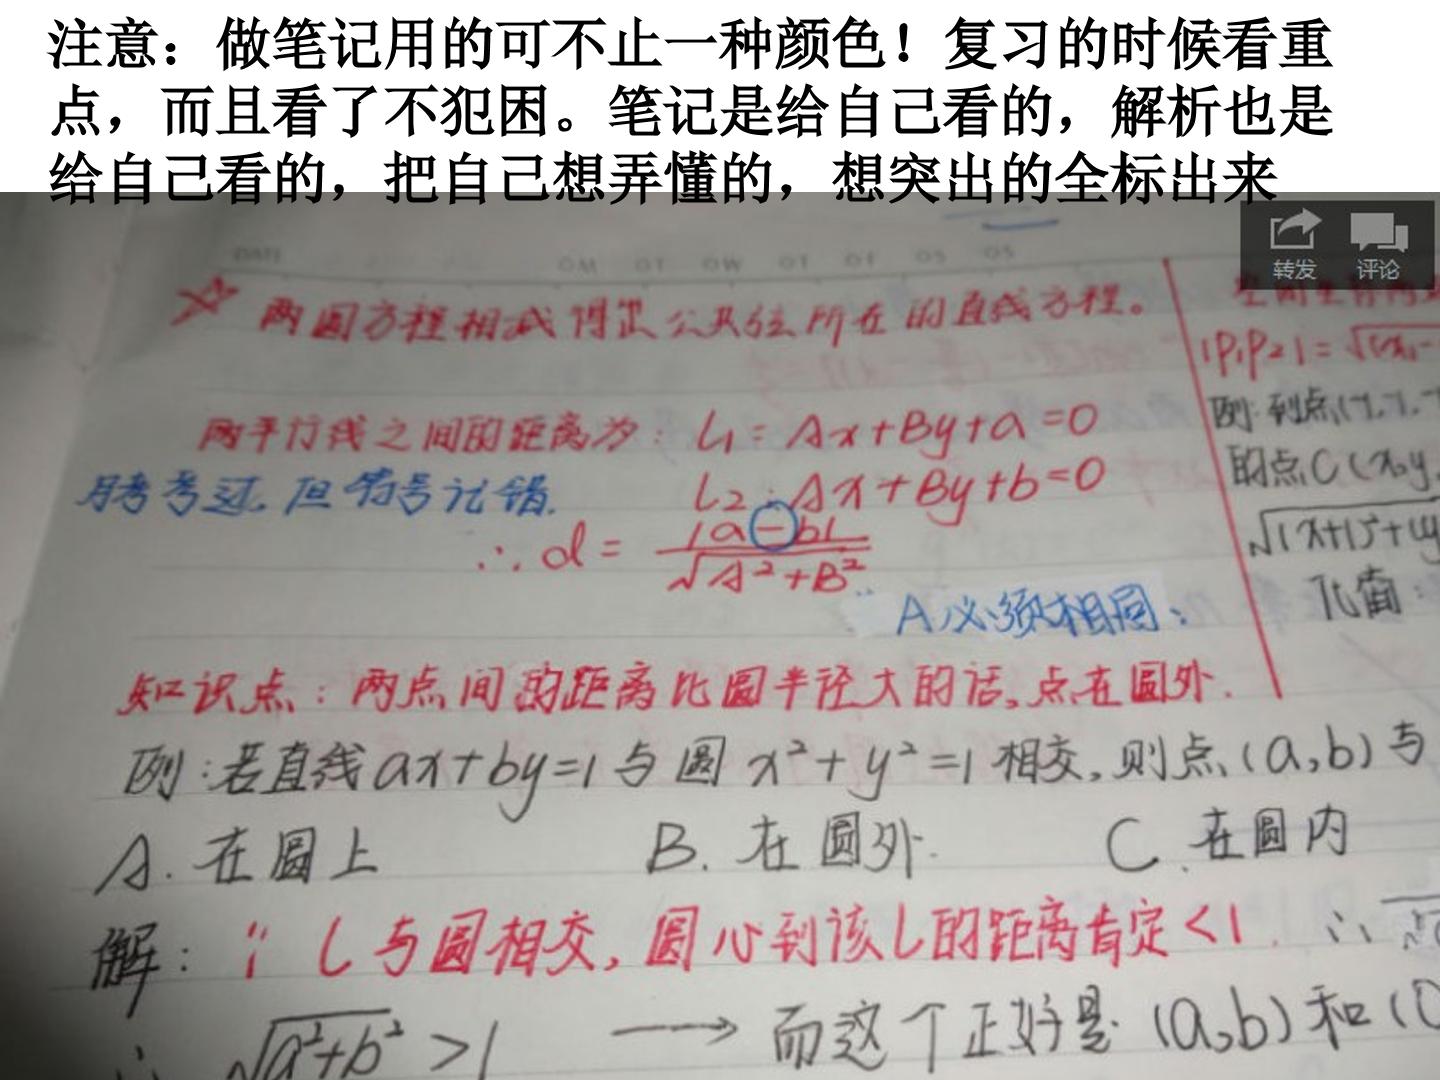 注意：做笔记用的可不止一种颜色！复习的时候看重
点，而且看了不犯困。笔记是给自己看的，解析也是
给自己看的，把自己想弄懂的，想突出的全标出来
转发 评论
DATE OM OT OW OT OF OS OS
两圆方程相减得出公共弦所在的直线方程。
|P₁P₂|=√(x₁-
两平行线之间的距离为：L₁=Ax+By+a=0
例:到点(1,1,-
月考考过,但符号记错. L₂:Ax+By+b=0
的点C(x,y,
∴d=|a-b|/√A²+B²
√(x+1)²+(y
A必须相同;
化简:
知识点：两点间的距离比圆半径大的话,点在圆外.
例:若直线ax+by=1与圆x²+y²=1相交,则点(a,b)与
A.在圆上 B.在圆外. C.在圆内
解:∵L与圆相交,圆心到该L的距离肯定<1. ∴
∴√a²+b²>1 → 而这个正好是(a,b)和(0